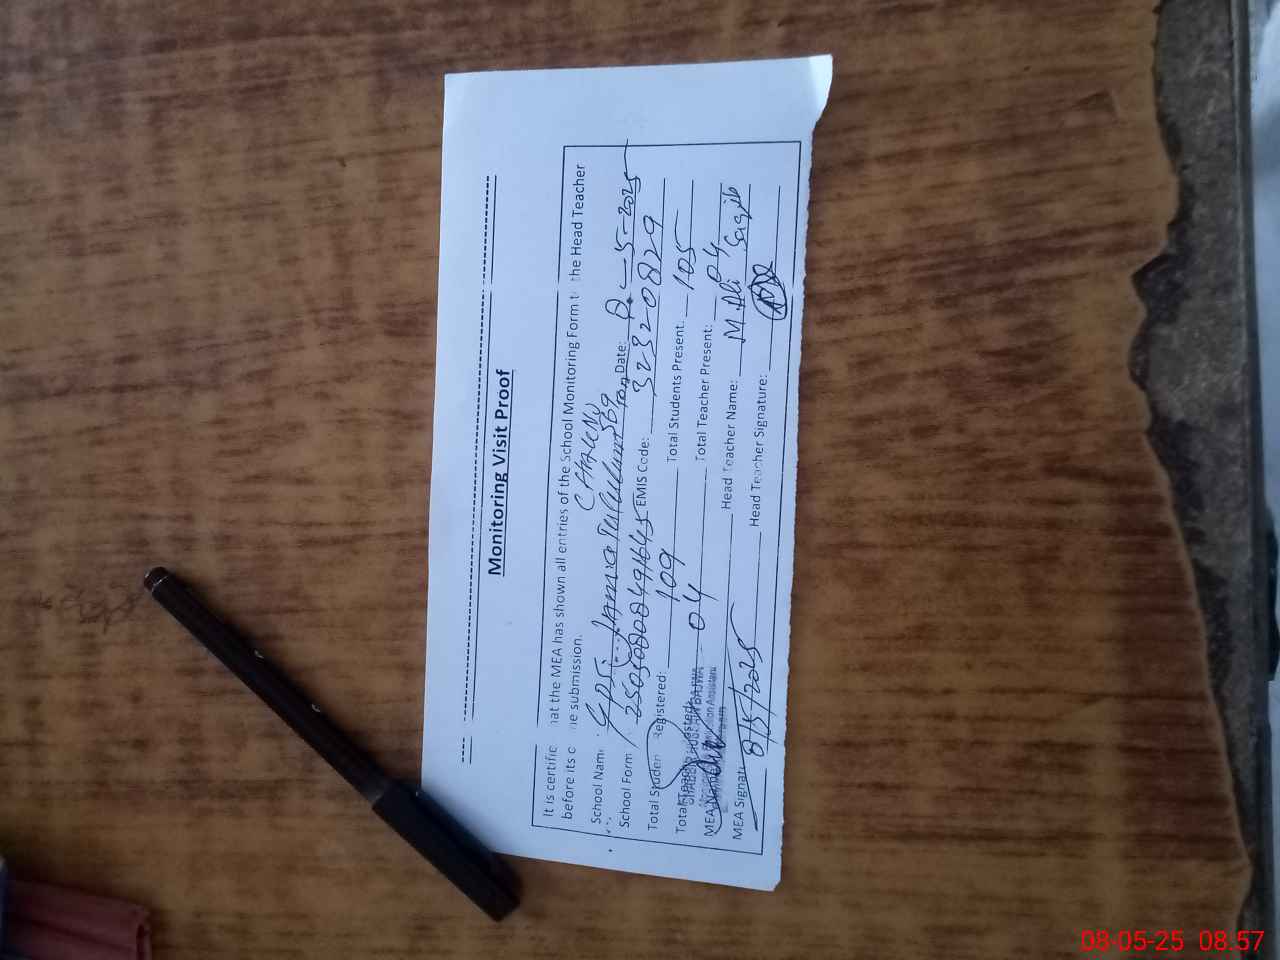 Monitoring Visit Proof
It is certific at the MEA has shown all entries of the School Monitoring Form t the Head Teacher
before its submission.
CHAK NO
School Nam GPS Jamia 569 Date: 8-5-2025
School Form EMIS Code: 32320829
Total Studen Registered: 109 Total Students Present. 105
Total 04 Total Teacher Present: 04
MEA Nam Head Teacher Name: M. Ali Saqib
MEA Signat 8/5/2025 Head Teacher Signature:
08-05-25 08:57